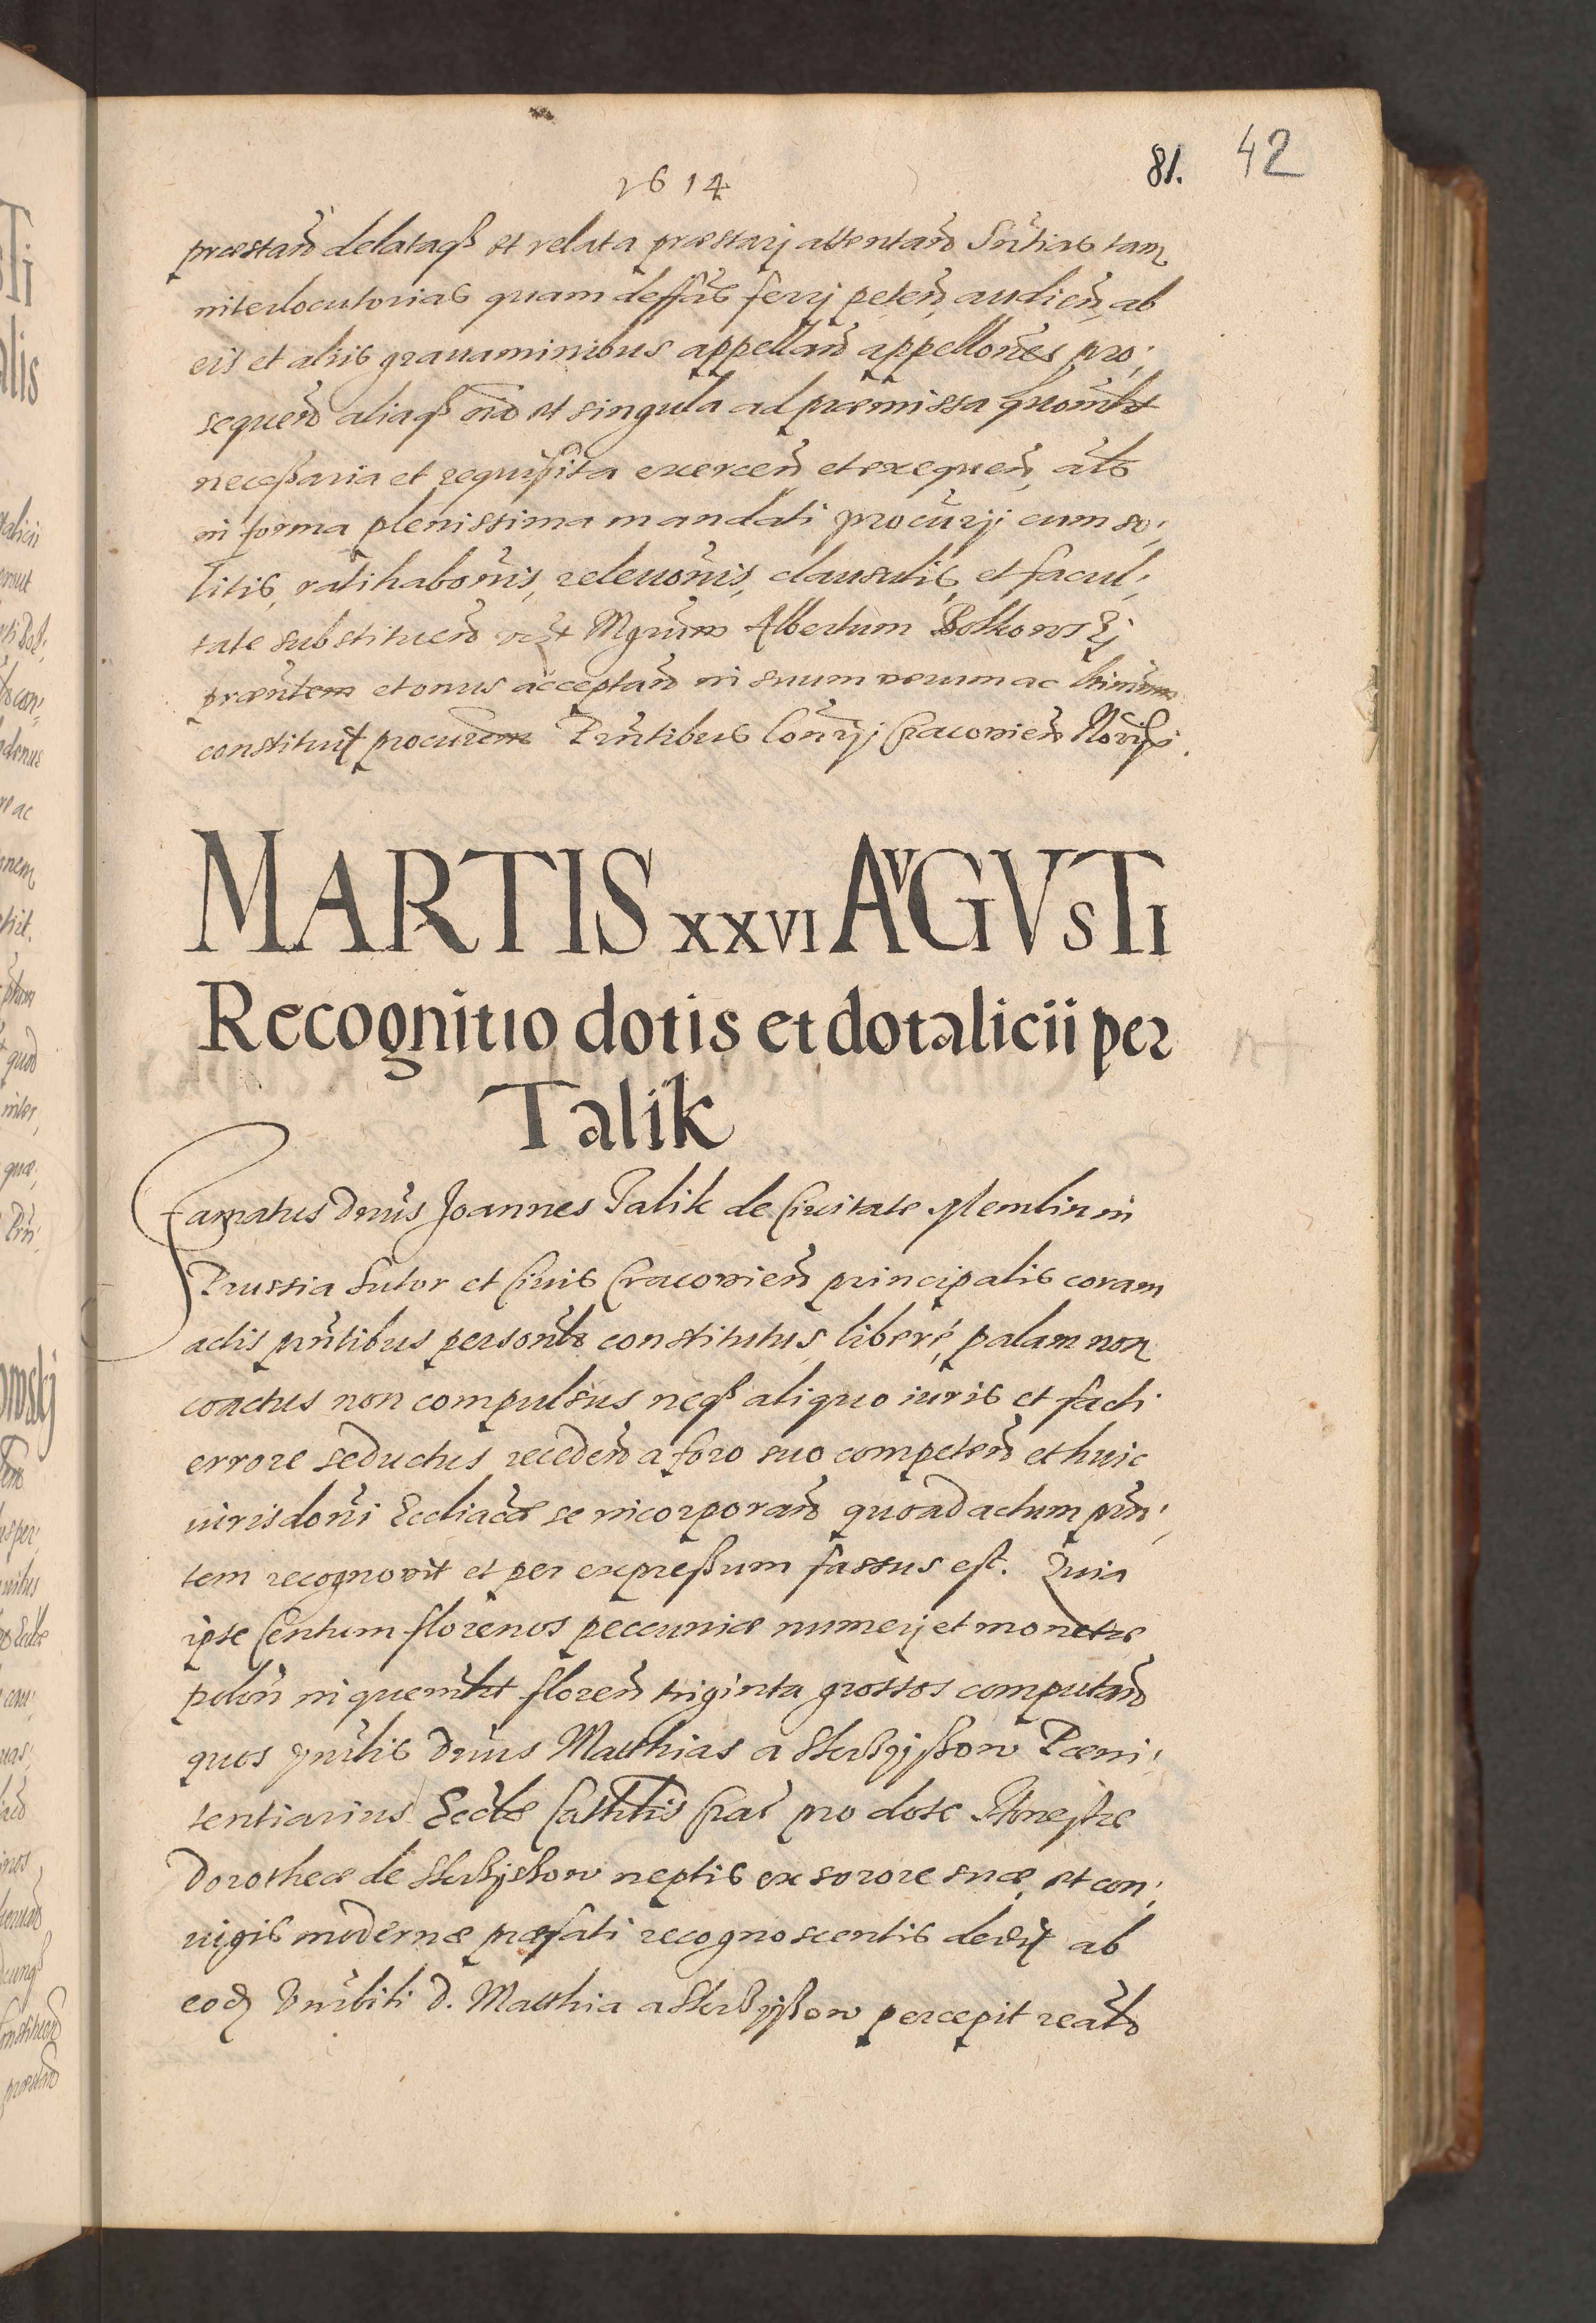 1614
81. 42
præstan̄ delataq̃ et relata præstarj attentan̄ Sn̄tias tam
interlocutorias quam deffās ferrj peten̄, audien̄, ab
eis et aliis grauaminibus appellan̄ appellon̄es pro:
sequen̄ aliaq̃ oīā et singula ad præmissa quomlt
necessaria et requisita exercen̄ et exequen̄, als
in forma plenissima mandati procūrij cum so:
litis, ratihabon̄is, releuon̄is, clausulis, et facul:
tate substituen̄ Mgrum Albertum
præn̄tem et onus acceptan̄ in suum uerum ac
constituit procurem Prn̄tibus Con̄rij Cracouien̄
MARTIS XXVI AVGVSTI
Recognitio dotis et dotalicii per
Talik
Famatus Dnūs Joannes Talik de Ciuitate in
Prussia Sutor et Ciuis Cracouien̄ principalis coram
actis prn̄tibus personlr constitutus, liberè, palam non
coactus non compulsus neq̃ aliquo iuris et facti
errore seductus receden̄ a foro suo competen̄ et huic
iurisdon̄i Eccliacæ se incorporan̄ quoad actum prn̄:
tem recognouit et per expressum fassus est. Quia
ipse Centum florenos peccuniæ numerj et monetæ
polōn in quemlt floren̄ triginta grossos computan̄
quos Dnūs Matthias a Pæni:
tentiarius Ecclæ Cathlis Crac̄ pro dote Honestæ
Dorotheæ de neptis ex sorore suæ, et con:
iugis modernæ præfati recognoscentis dedit ab
eod D. Matthia a percepit realr